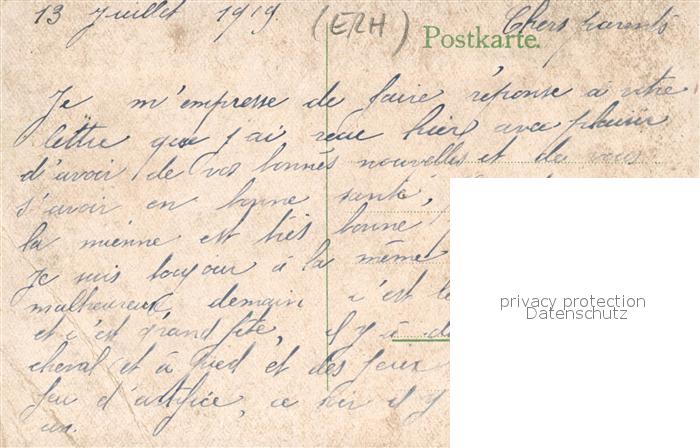 13 Juillet 1919. (ERH) Chers parents
Postkarte.
Je m'empresse de faire réponse à votre
lettre que j'ai reçue hier avec plaisir
d'avoir de vos bonnes nouvelles et de vous
s'avoir en bonne santé,
la mienne est très bonne
Je suis toujour à la même
malheureux, demain c'est le
et c'est grand fête, il y à
cheval et à pied et des jeux
feu d'artifice, ce soir il y
un.
privacy protection
Datenschutz